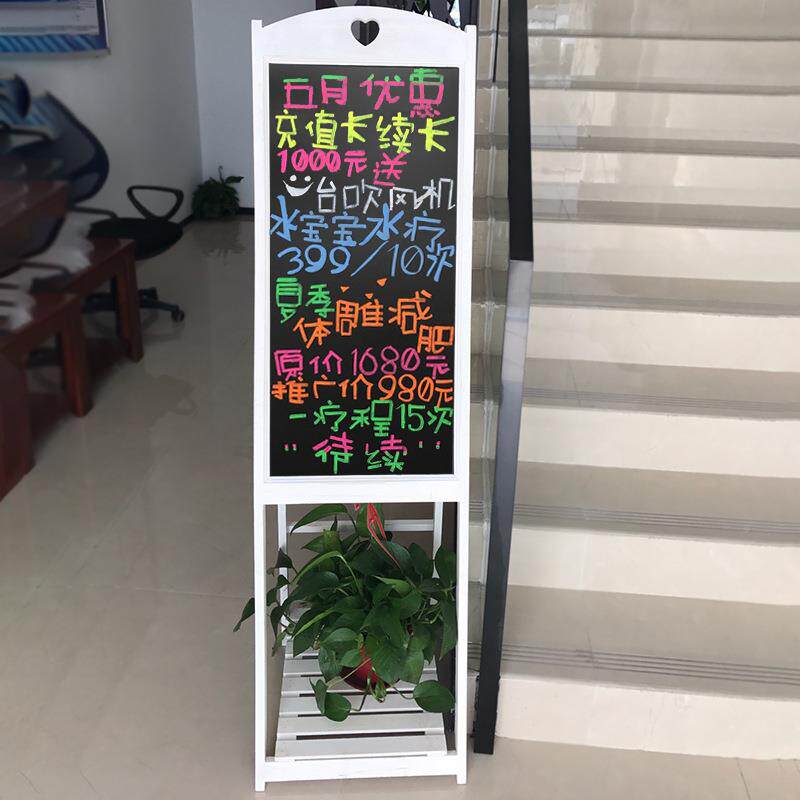 五月优惠
充值卡续卡
1000元送
一台吹风机
水宝宝水疗
399/10次
夏季
体雕减
肥
原价1680元
推广价980元
一疗程15次
"待续"